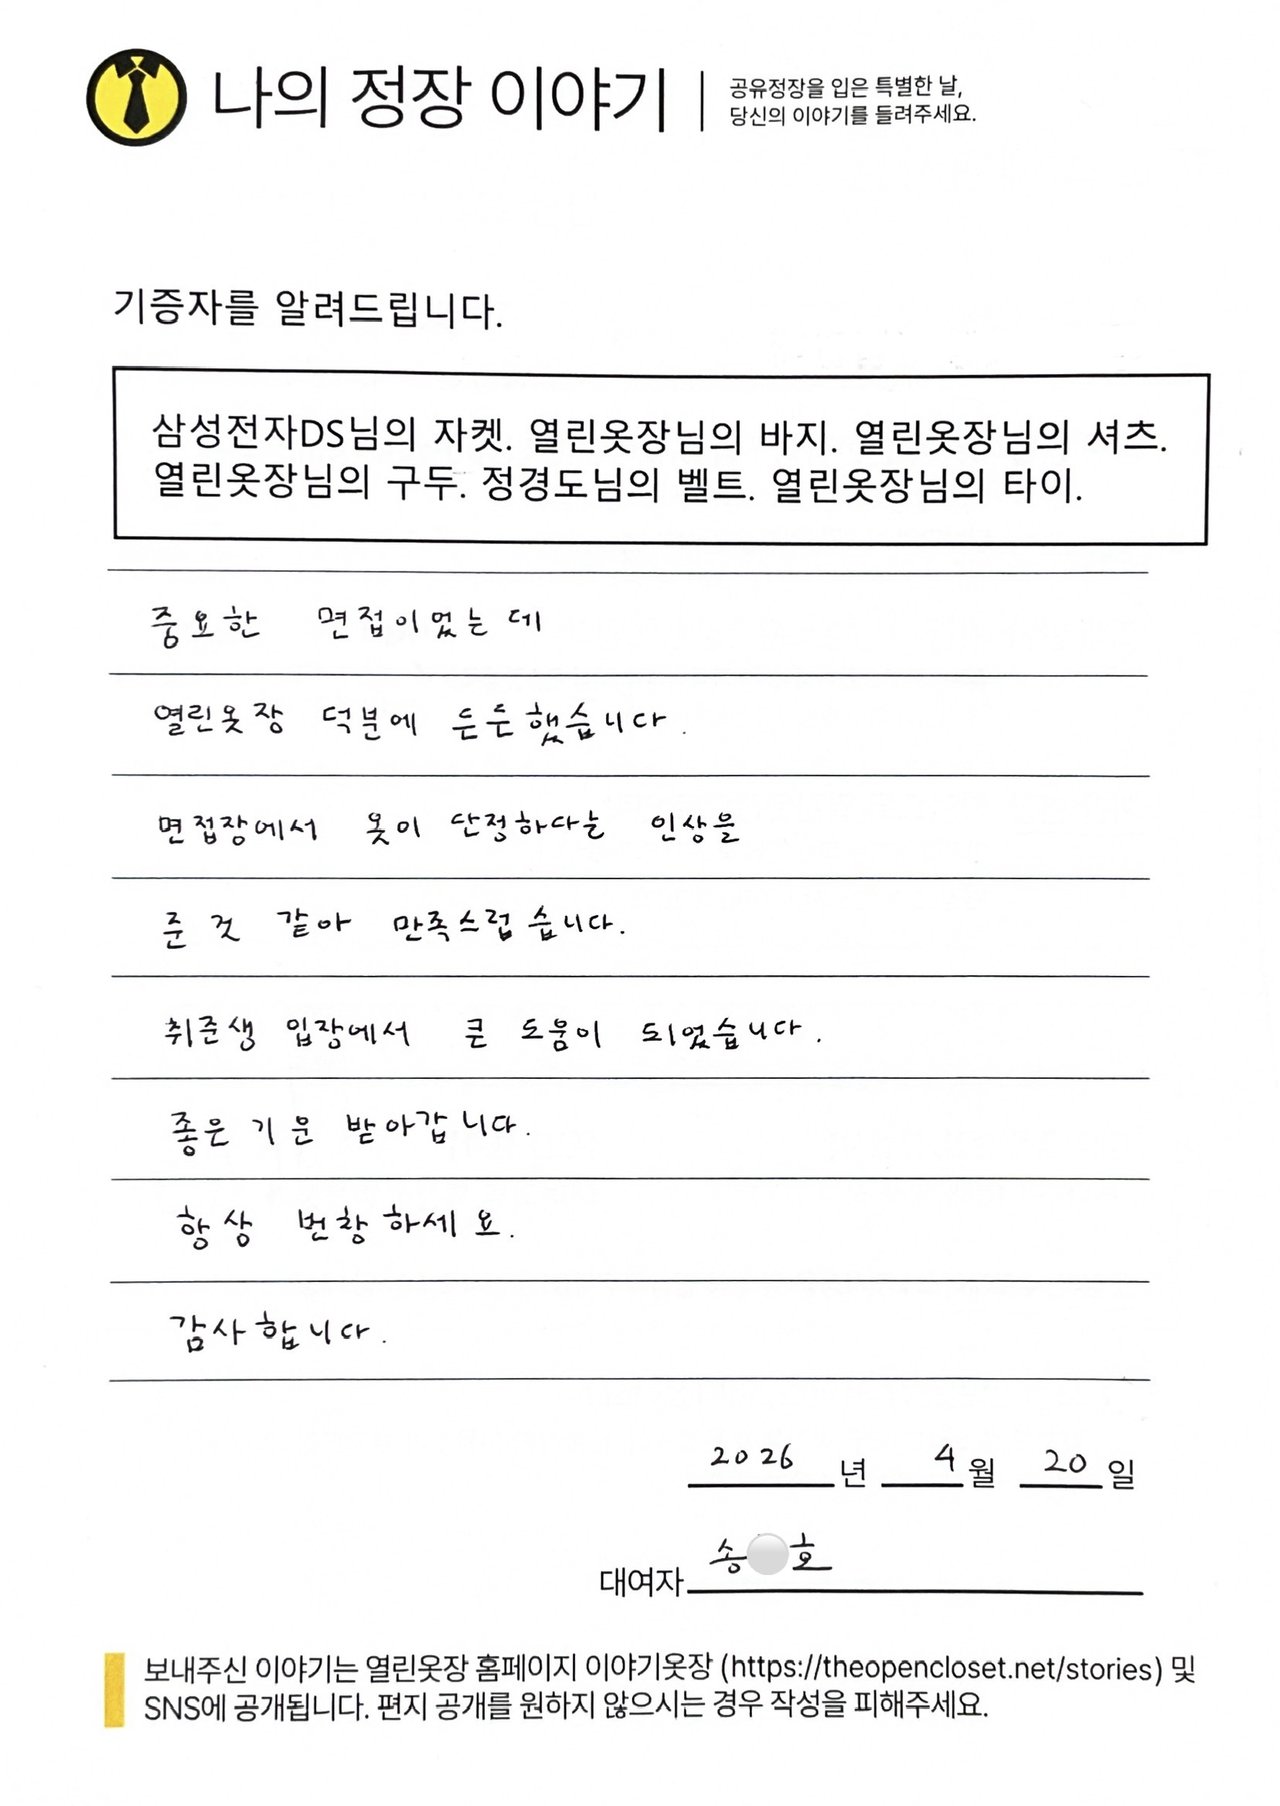 나의 정장 이야기
공유정장을 입은 특별한 날,
당신의 이야기를 들려주세요.
기증자를 알려드립니다.
삼성전자DS님의 자켓. 열린옷장님의 바지. 열린옷장님의 셔츠.
열린옷장님의 구두. 정경도님의 벨트. 열린옷장님의 타이.
중요한 면접이었는데
열린옷장 덕분에 든든했습니다.
면접장에서 옷이 단정하다는 인상을
준 것 같아 만족스럽습니다.
취준생 입장에서 큰 도움이 되었습니다.
좋은 기운 받아갑니다.
항상 번창하세요.
감사합니다.
2026 년 4 월 20 일
대여자 송 호
보내주신 이야기는 열린옷장 홈페이지 이야기옷장 (https://theopencloset.net/stories) 및
SNS에 공개됩니다. 편지 공개를 원하지 않으시는 경우 작성을 피해주세요.